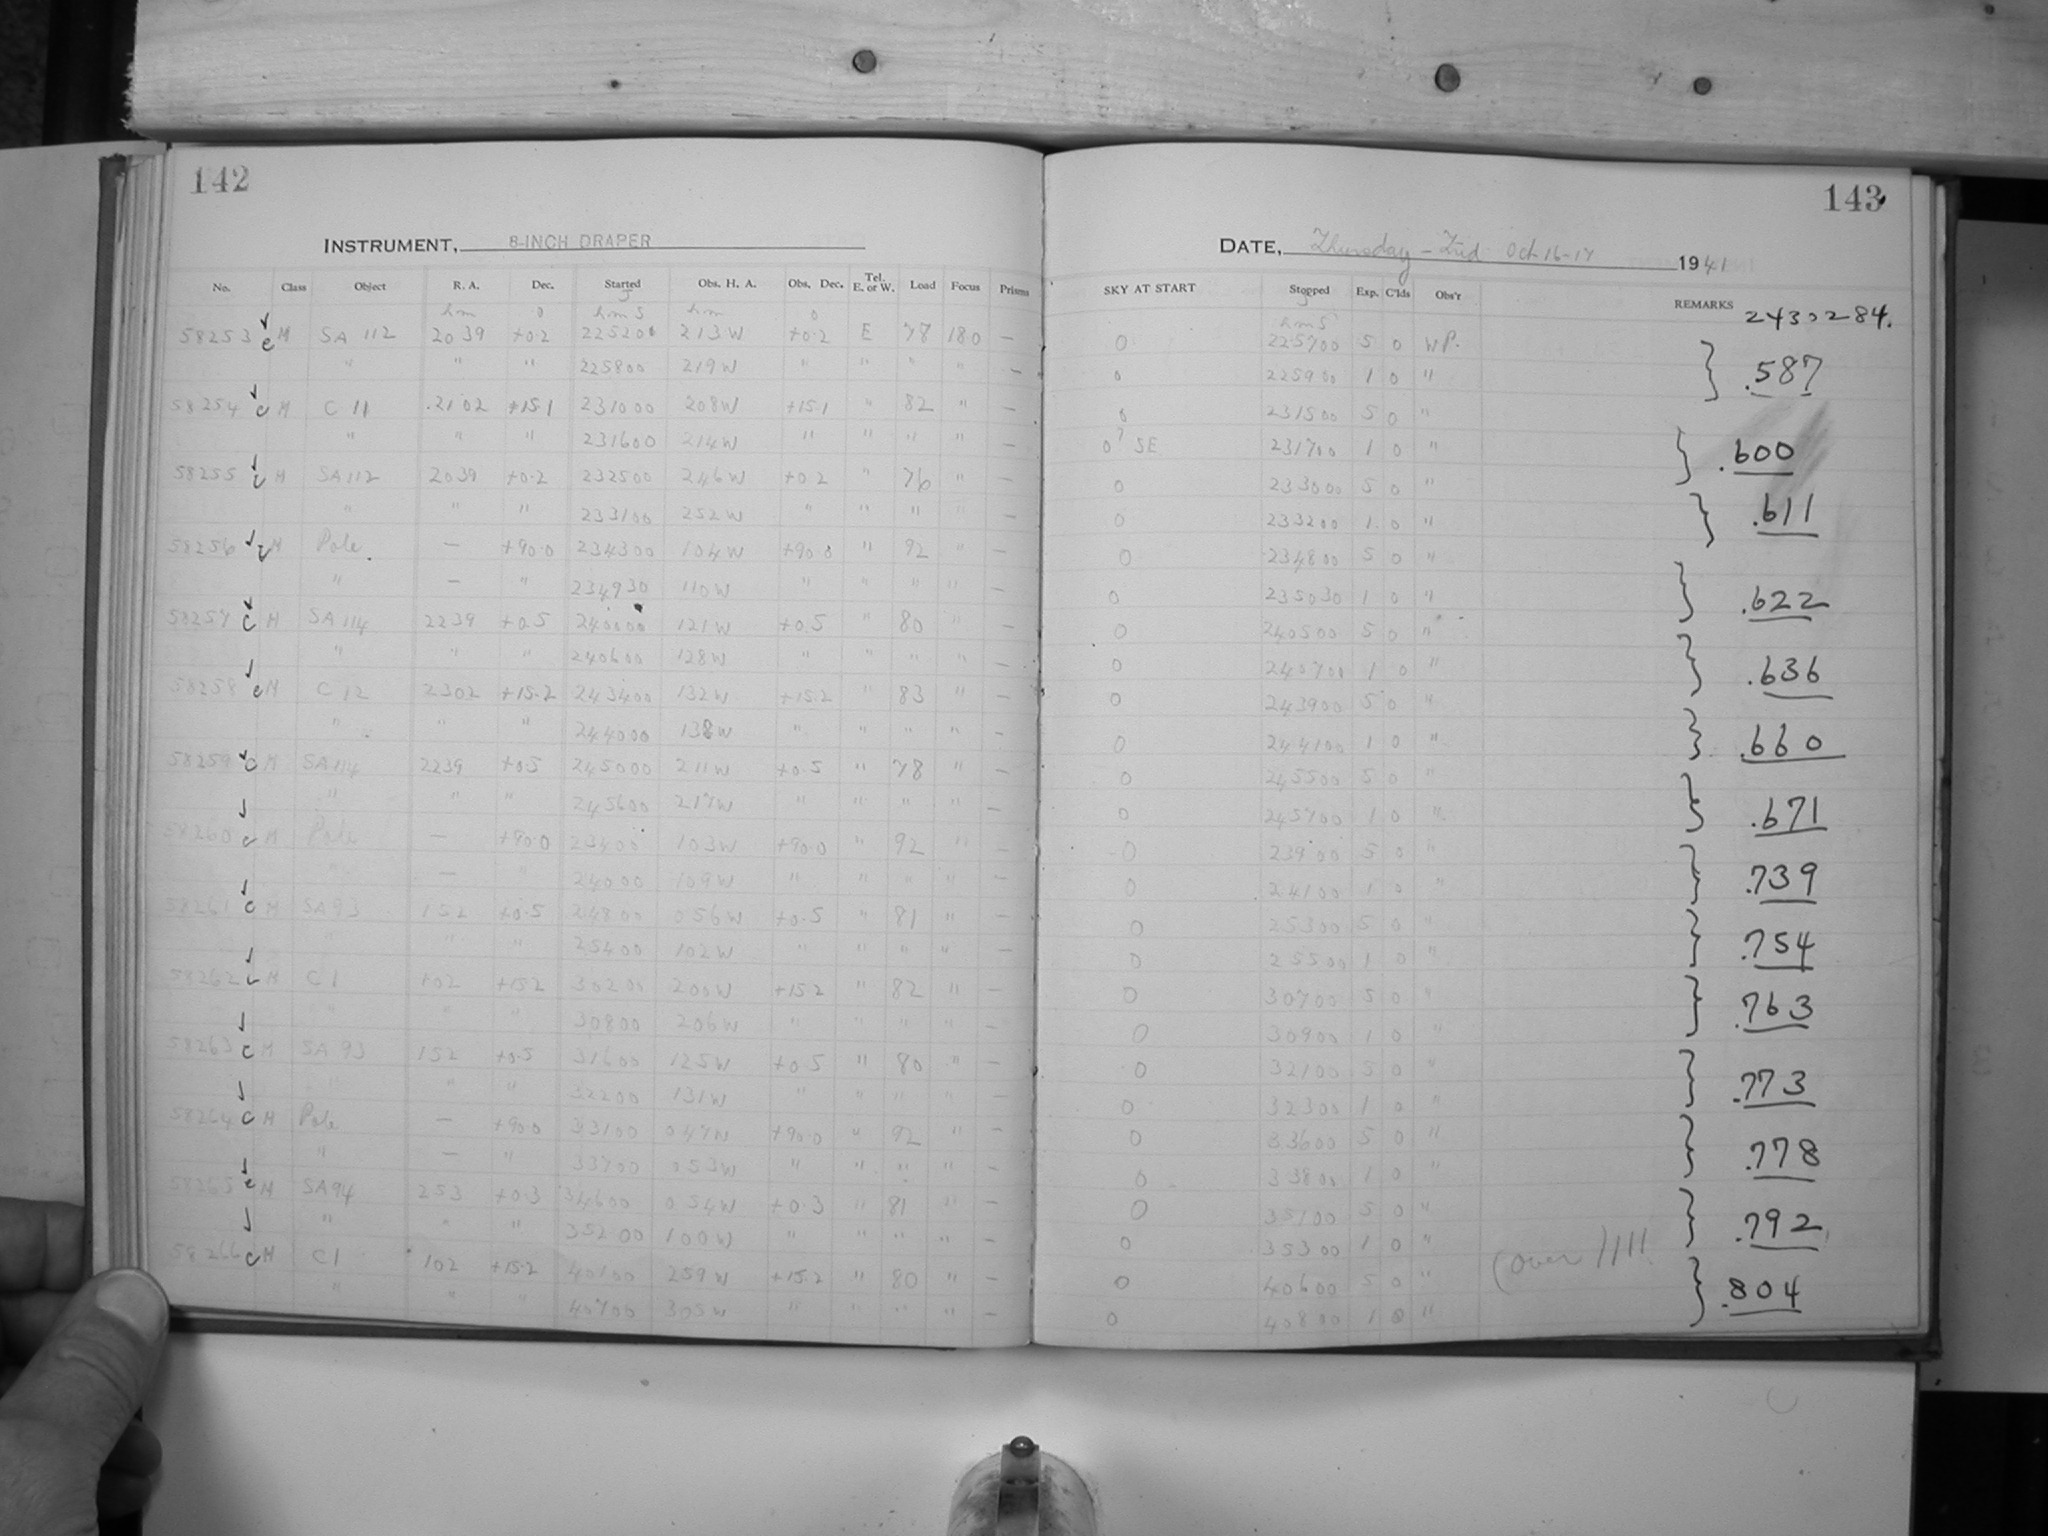 142
INSTRUMENT, 8-INCH DRAPER
No. Class Object R. A. Dec. Started Obs. H. A. Obs. Dec. Tel. E. or W. Load Focus Prisms
h m o h m s h m o
58253 c M SA 112 2039 +0.2 225200 213W +0.2 E 78 180 —
" " " 225800 219W " " " " —
58254 c M C 11 2102 +15.1 231000 208W +15.1 " 82 " —
" " " 231600 214W " " " " —
58255 c M SA 112 2039 +0.2 232500 246W +0.2 " 76 " —
" " " 233100 252W " " " " —
58256 c M Pole — +90.0 234300 104W +90.0 " 92 " —
" — " 234930 110W " " " " —
58257 c M SA 114 2239 +0.5 240000 121W +0.5 " 80 " —
" " " 240600 128W " " " " —
58258 c M C 12 2302 +15.2 243400 132W +15.2 " 83 " —
" " " 244000 138W " " " " —
58259 c M SA 114 2239 +0.5 245000 211W +0.5 " 78 " —
" " " 245600 217W " " " " —
58260 c M Pole — +90.0 23400 103W +90.0 " 92 " —
" — " 24000 109W " " " " —
58261 c M SA 93 152 +0.5 24800 056W +0.5 " 81 " —
" " " 25400 102W " " " " —
58262 c M C 1 102 +15.2 30200 200W +15.2 " 82 " —
" " " 30800 206W " " " " —
58263 c M SA 93 152 +0.5 31600 125W +0.5 " 80 " —
" " " 32200 131W " " " " —
58264 c M Pole — +90.0 33100 047W +90.0 " 92 " —
" — " 33700 053W " " " " —
58265 c M SA 94 253 +0.3 34600 054W +0.3 " 81 " —
" " " 35200 100W " " " " —
58266 c M C 1 102 +15.2 40100 259W +15.2 " 80 " —
" " " 40700 305W " " " " —
143
DATE, Thursday – Frid Oct 16-17 1941
SKY AT START Stopped Exp. C'lds Obs'r REMARKS
h m s 2430284.
0 225700 5 0 WP.
0 225900 1 0 " .587
0 231500 5 0 "
0? SE 231700 1 0 " .600
0 233000 5 0 "
0 233200 1 0 " .611
0 234800 5 0 "
0 235030 1 0 " .622
0 240500 5 0 "
0 240700 1 0 " .636
0 243900 5 0 "
0 244100 1 0 " .660
0 245500 5 0 "
0 245700 1 0 " .671
0 23900 5 0 "
0 24100 1 0 " .739
0 25300 5 0 "
0 25500 1 0 " .754
0 30700 5 0 "
0 30900 1 0 " .763
0 32100 5 0 "
0 32300 1 0 " .773
0 33600 5 0 "
0 33800 1 0 " .778
0 35100 5 0 "
0 35300 1 0 " .792
0 40600 5 0 " (over)!!!!
0 40800 1 0 " .804